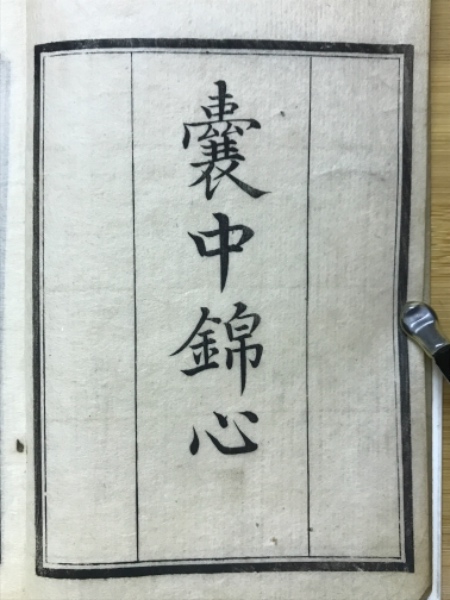 囊中錦心